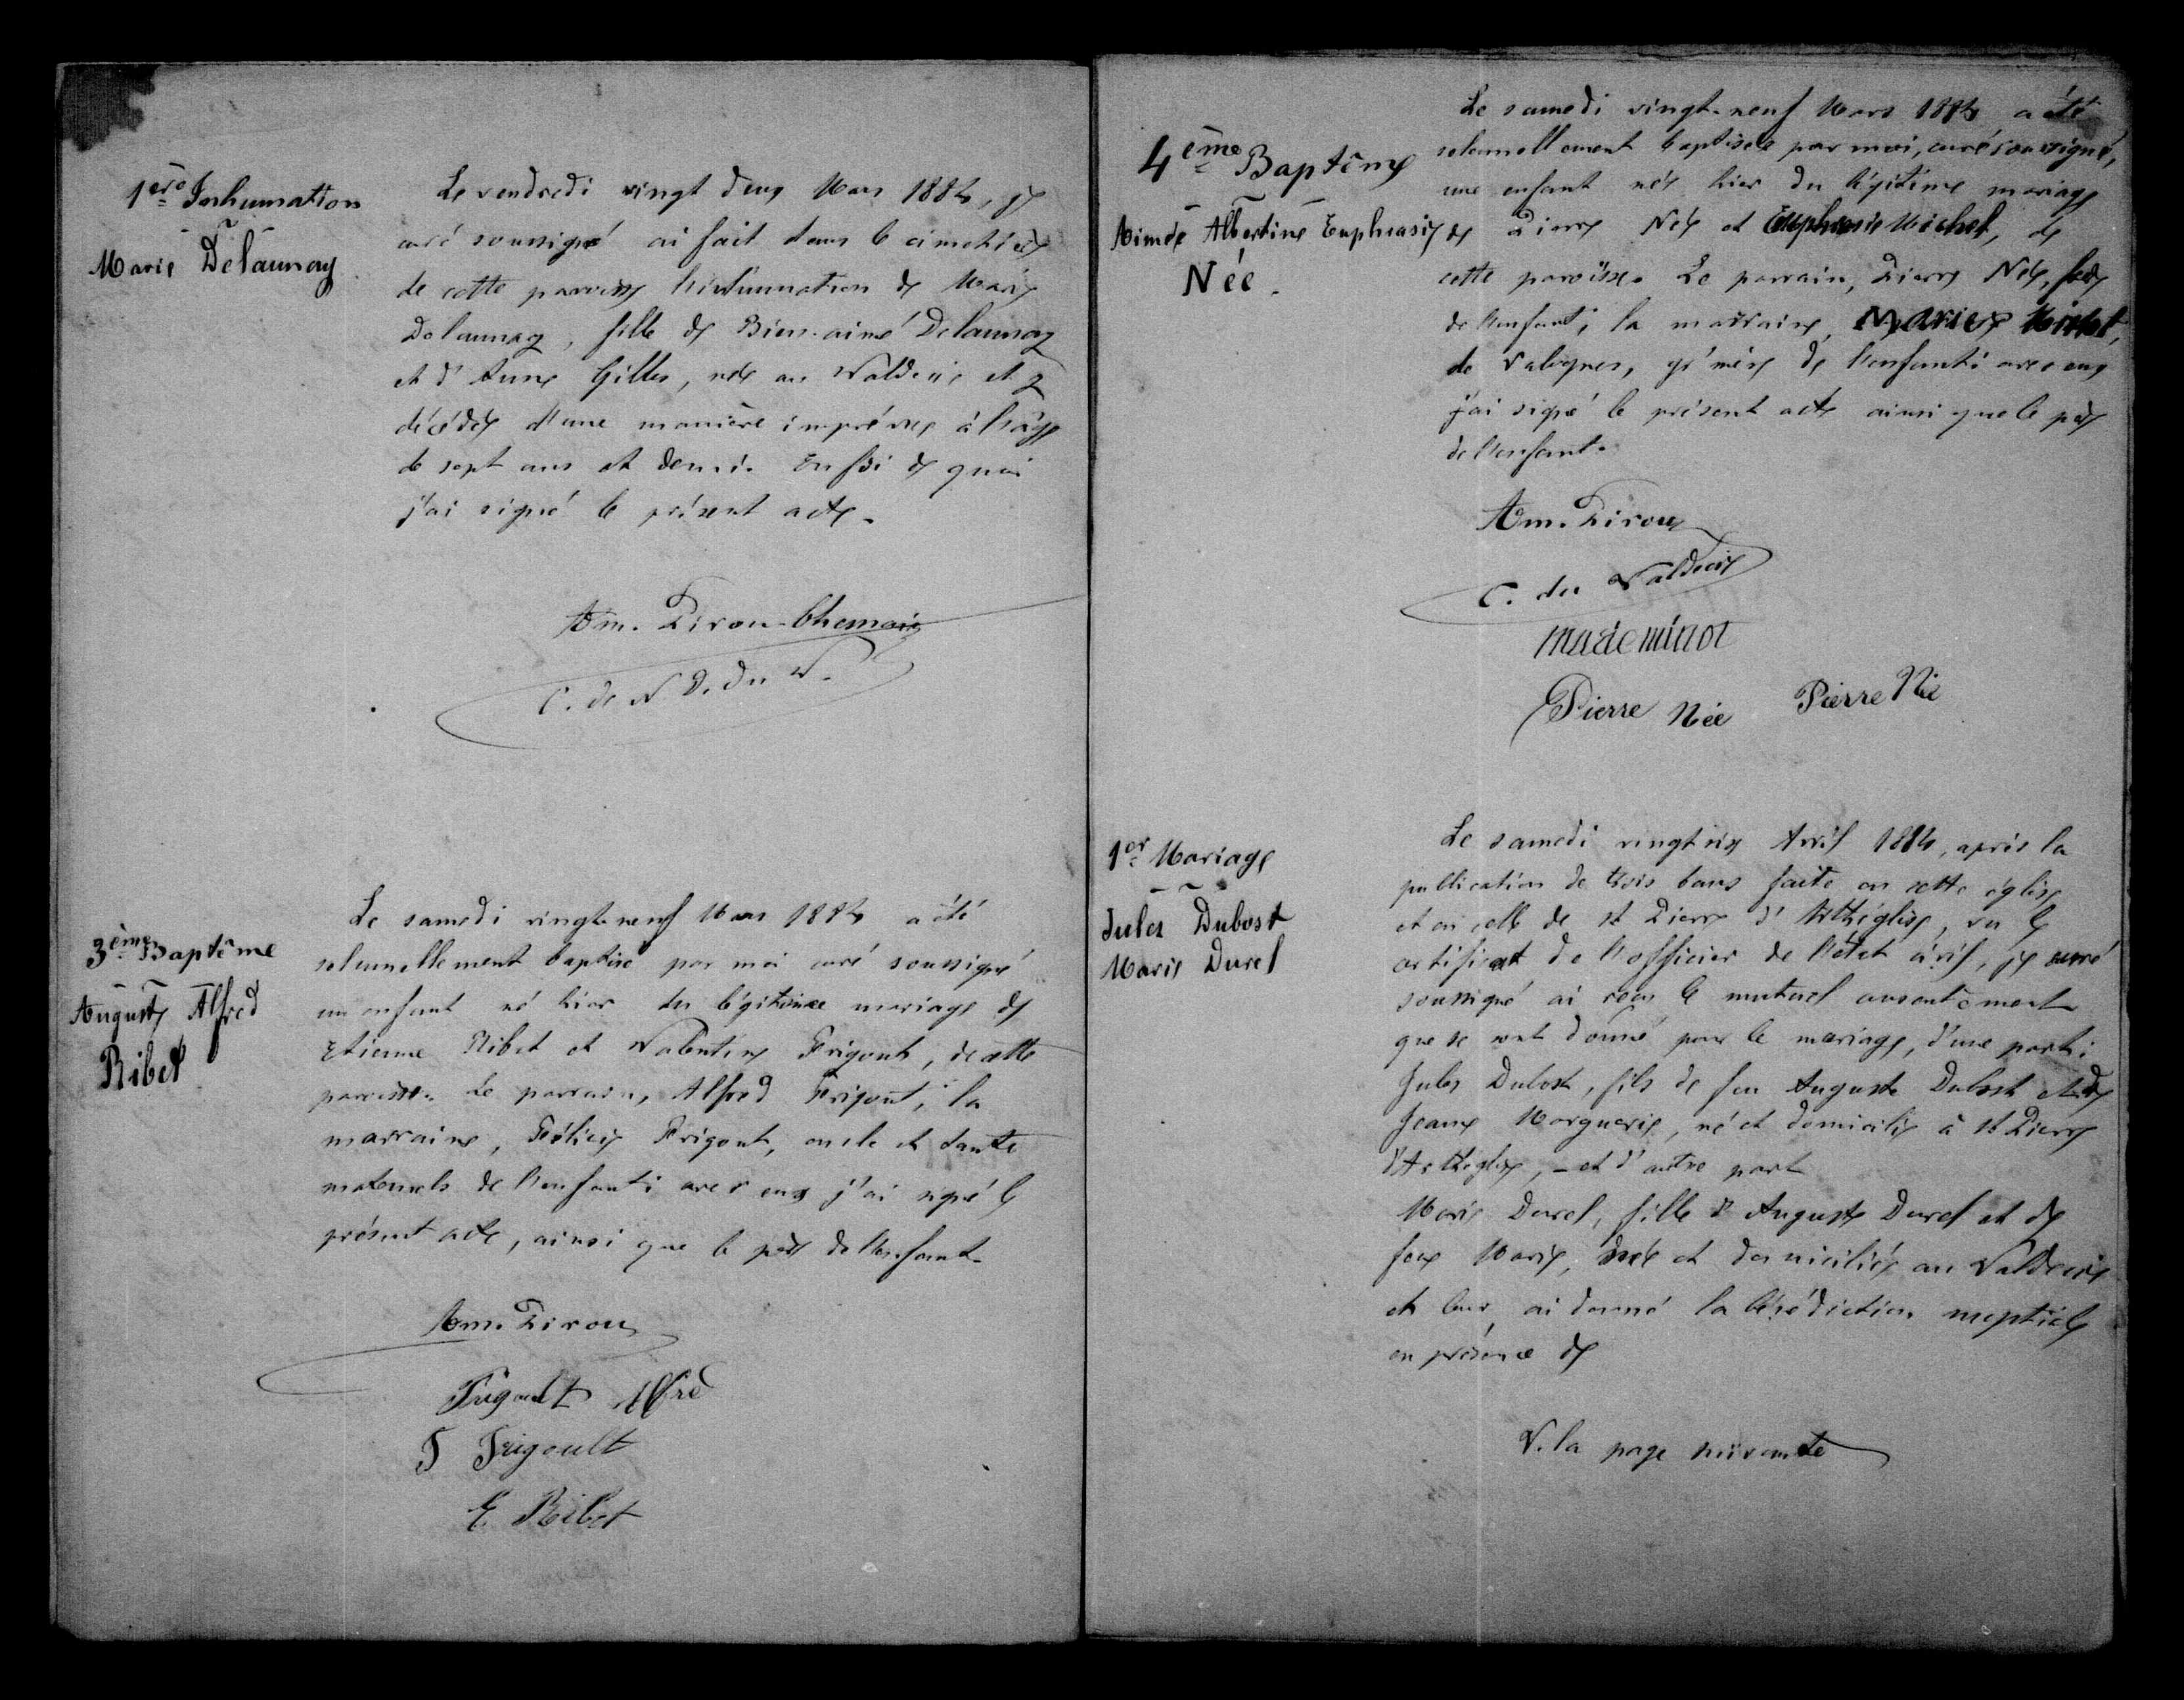 1ère Inhumation
Marie Delaunay
Le vendredi vingt deux Mars 1884, je
curé soussigné ai fait dans le cimetière
de cette paroisse l'inhumation de Marie
Delaunay, fille de Bien-aimé Delaunay
et d'Anne Gilles, née au Valdécie et y
décédée d'une manière imprévue à l'âge
de sept ans et demi. En foi de quoi
j'ai signé le présent acte.
Am. Pirou
C. de N. D. du V.
3ème Baptême
Auguste Alfred
Ribet
Le samedi vingt-neuf Mars 1884 a été
solennellement baptisé par moi curé soussigné
un enfant né hier du légitime mariage de
Etienne Ribet et Valentine Frigout, de cette
paroisse. Le parrain, Alfred Frigout; la
marraine, Félicie Frigout, oncle et tante
maternels de l'enfant; avec eux j'ai signé le
présent acte, ainsi que le père de l'enfant.
Am. Pirou
Frigoult Alfred
F Frigoult
E Ribet
4ème Baptême
Aimée Albertine Euphrasie
Née.
Le samedi vingt-neuf Mars 1884 a été
solennellement baptisée par moi, curé soussigné,
une enfant née hier du légitime mariage
de Pierre Née et Euphrasie Michel, de
cette paroisse. Le parrain, Pierre Née,
de l'enfant; la marraine, Marie
de Valognes, gd mère de l'enfant; avec eux
j'ai signé le présent acte ainsi que le père
de l'enfant.
Am. Pirou
C. du Valdécie
Pierre Née Pierre Née
1er Mariage
Jules Dubost
Marie Durel
Le samedi vingt six Avril 1884, après la
publication de trois bans faite en cette église
et en celle de St Pierre d'Arthéglise, vu le
certificat de l'officier de l'état civil, je curé
soussigné ai reçu le mutuel consentement
que se sont donné pour le mariage, d'une part:
Jules Dubost, fils de feu Auguste Dubost et de
Jeanne Marguerie, né et domicilié à St Pierre
d'Arthéglise, - et d'autre part
Marie Durel, fille d'Auguste Durel et de
feue Marie, née et domiciliée au Valdécie
et leur ai donné la bénédiction nuptiale
en présence de
V. la page suivante